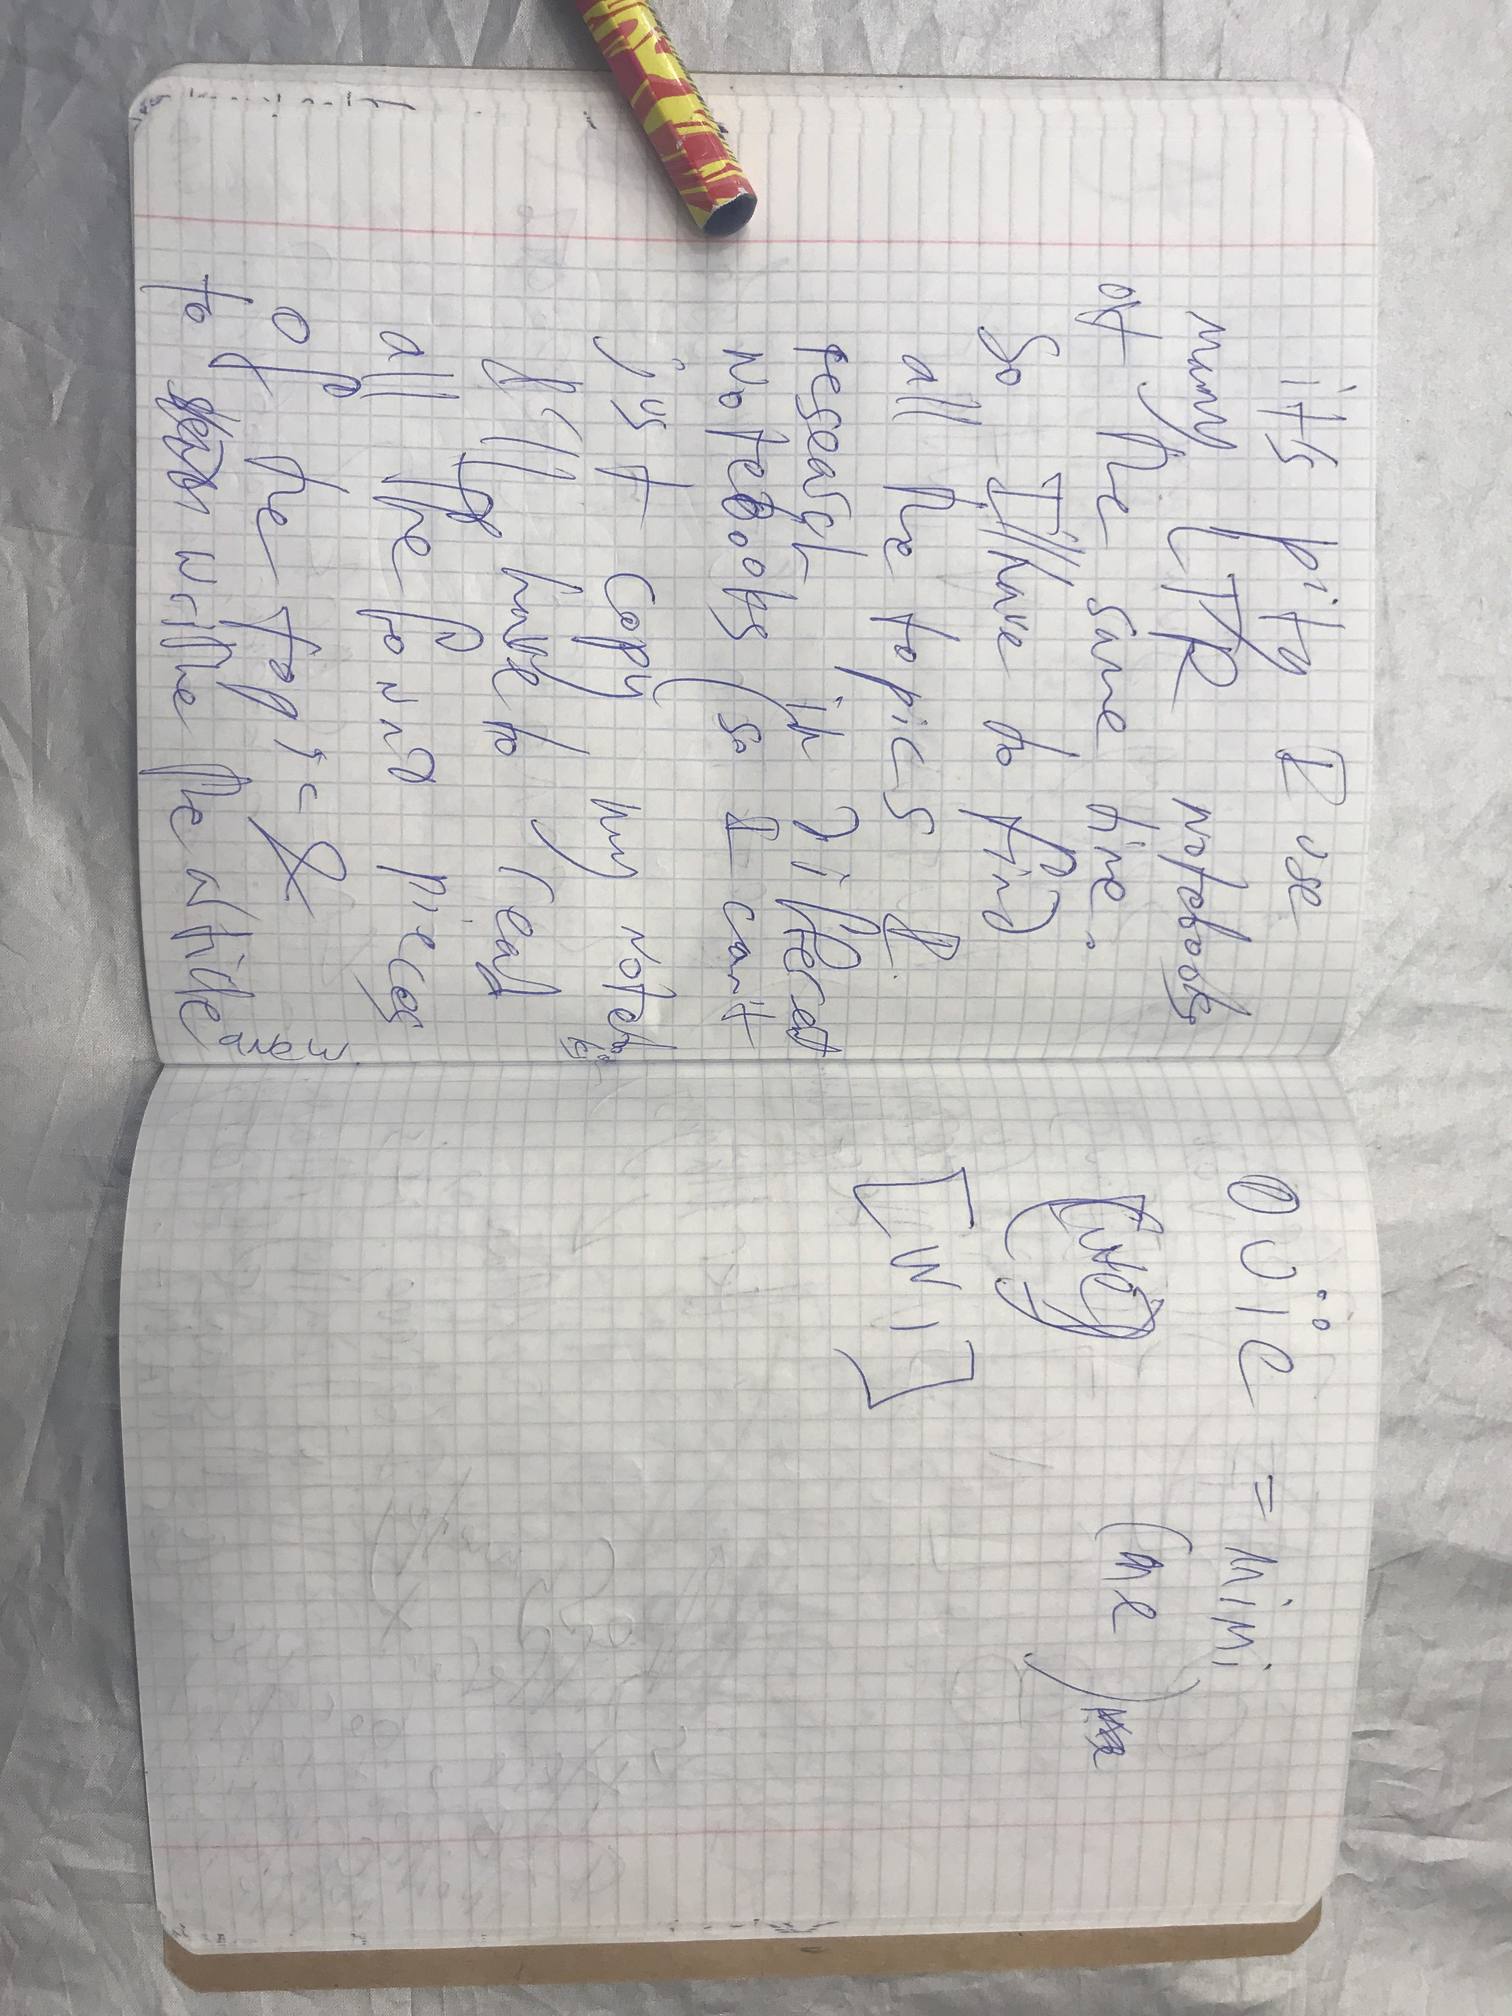 it's pity I use
many LTR notebooks
at the same time.
So I'll have to find
all the topics I
research in different
notebooks (so I can't
just copy my notebook
I'll have to read
all the found pieces
of the topic &
to write the article anew.
Oüïe = mimi
(me)
[wi]